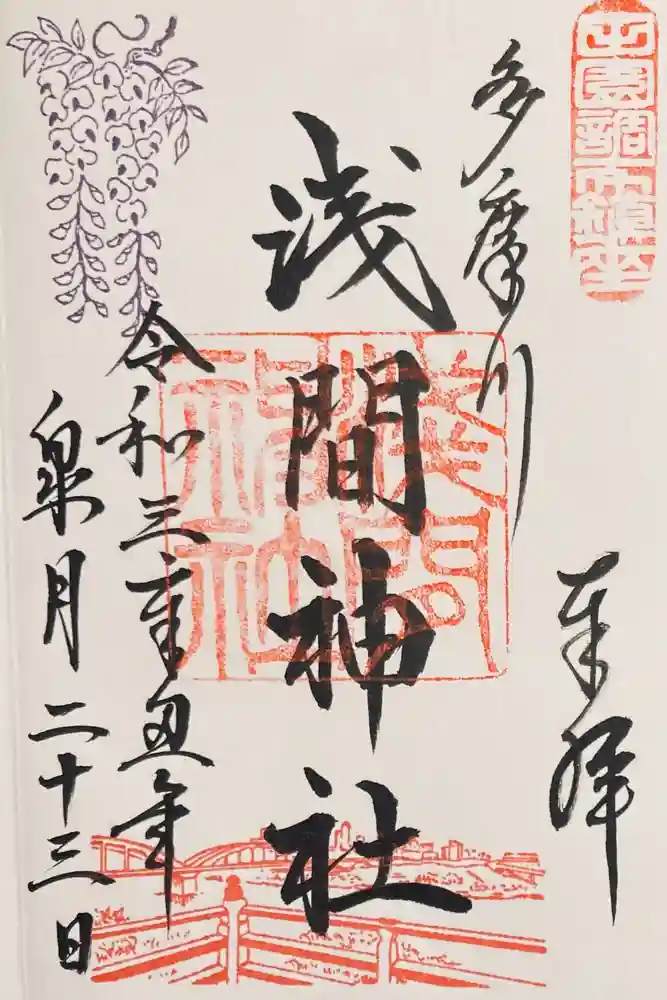 田園調布鎮座
奉拝
多摩川
浅間神社
淺間
神社
令和三辛丑年
皐月二十三日